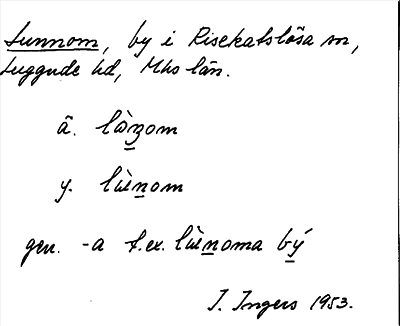 Lunnom, by i Risekatslösa sn,
Luggude hd, Mhs län.
ä. lòn̲om
y. lùen̲om
gen. -a t.ex. lùen̲oma bý̲
I. Ingers 1953.